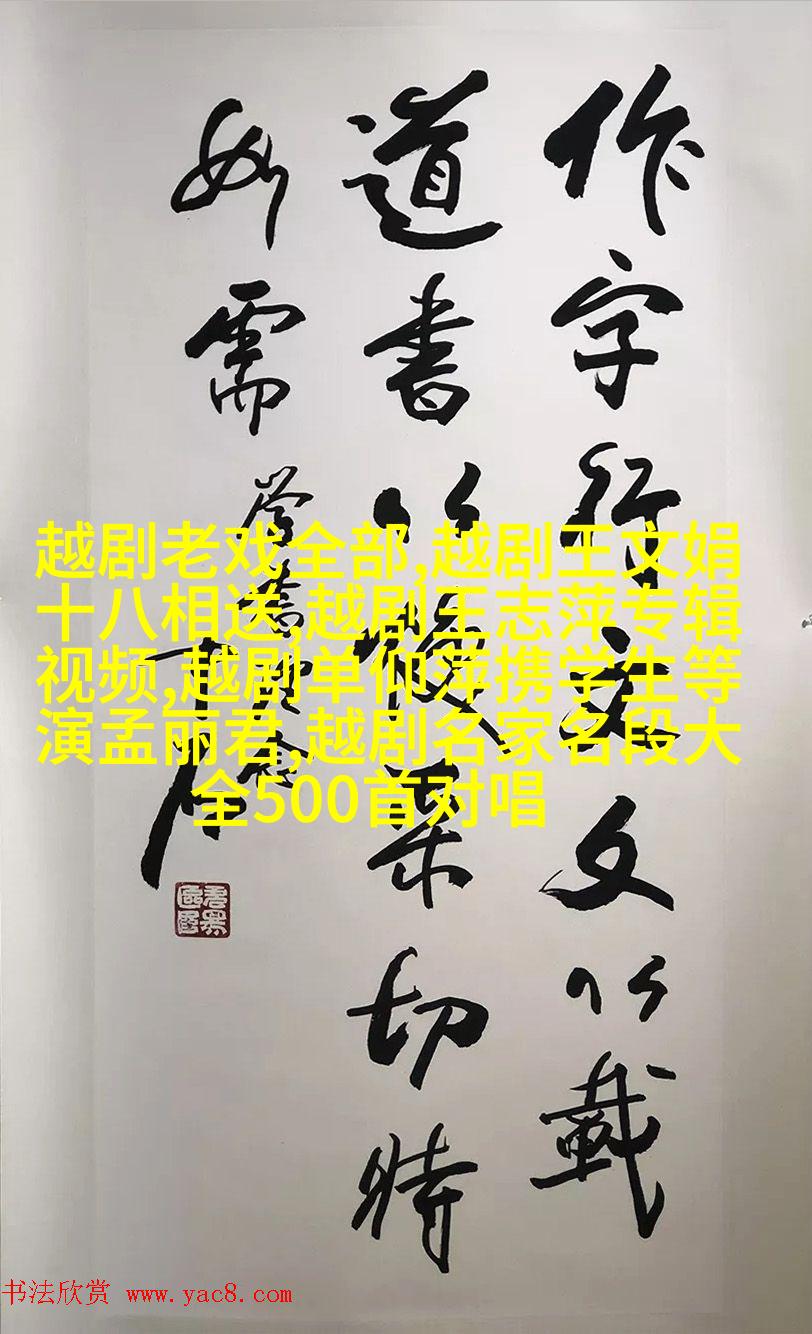 作字行文文以載
道書以煥采切時
如需
越剧老戏全部,越剧王文娟
十八相送,越剧王志萍专辑
视频,越剧单仰萍携学生等
演孟丽君,越剧名家名段大
全500首对唱
书法欣赏 www.yac8.com